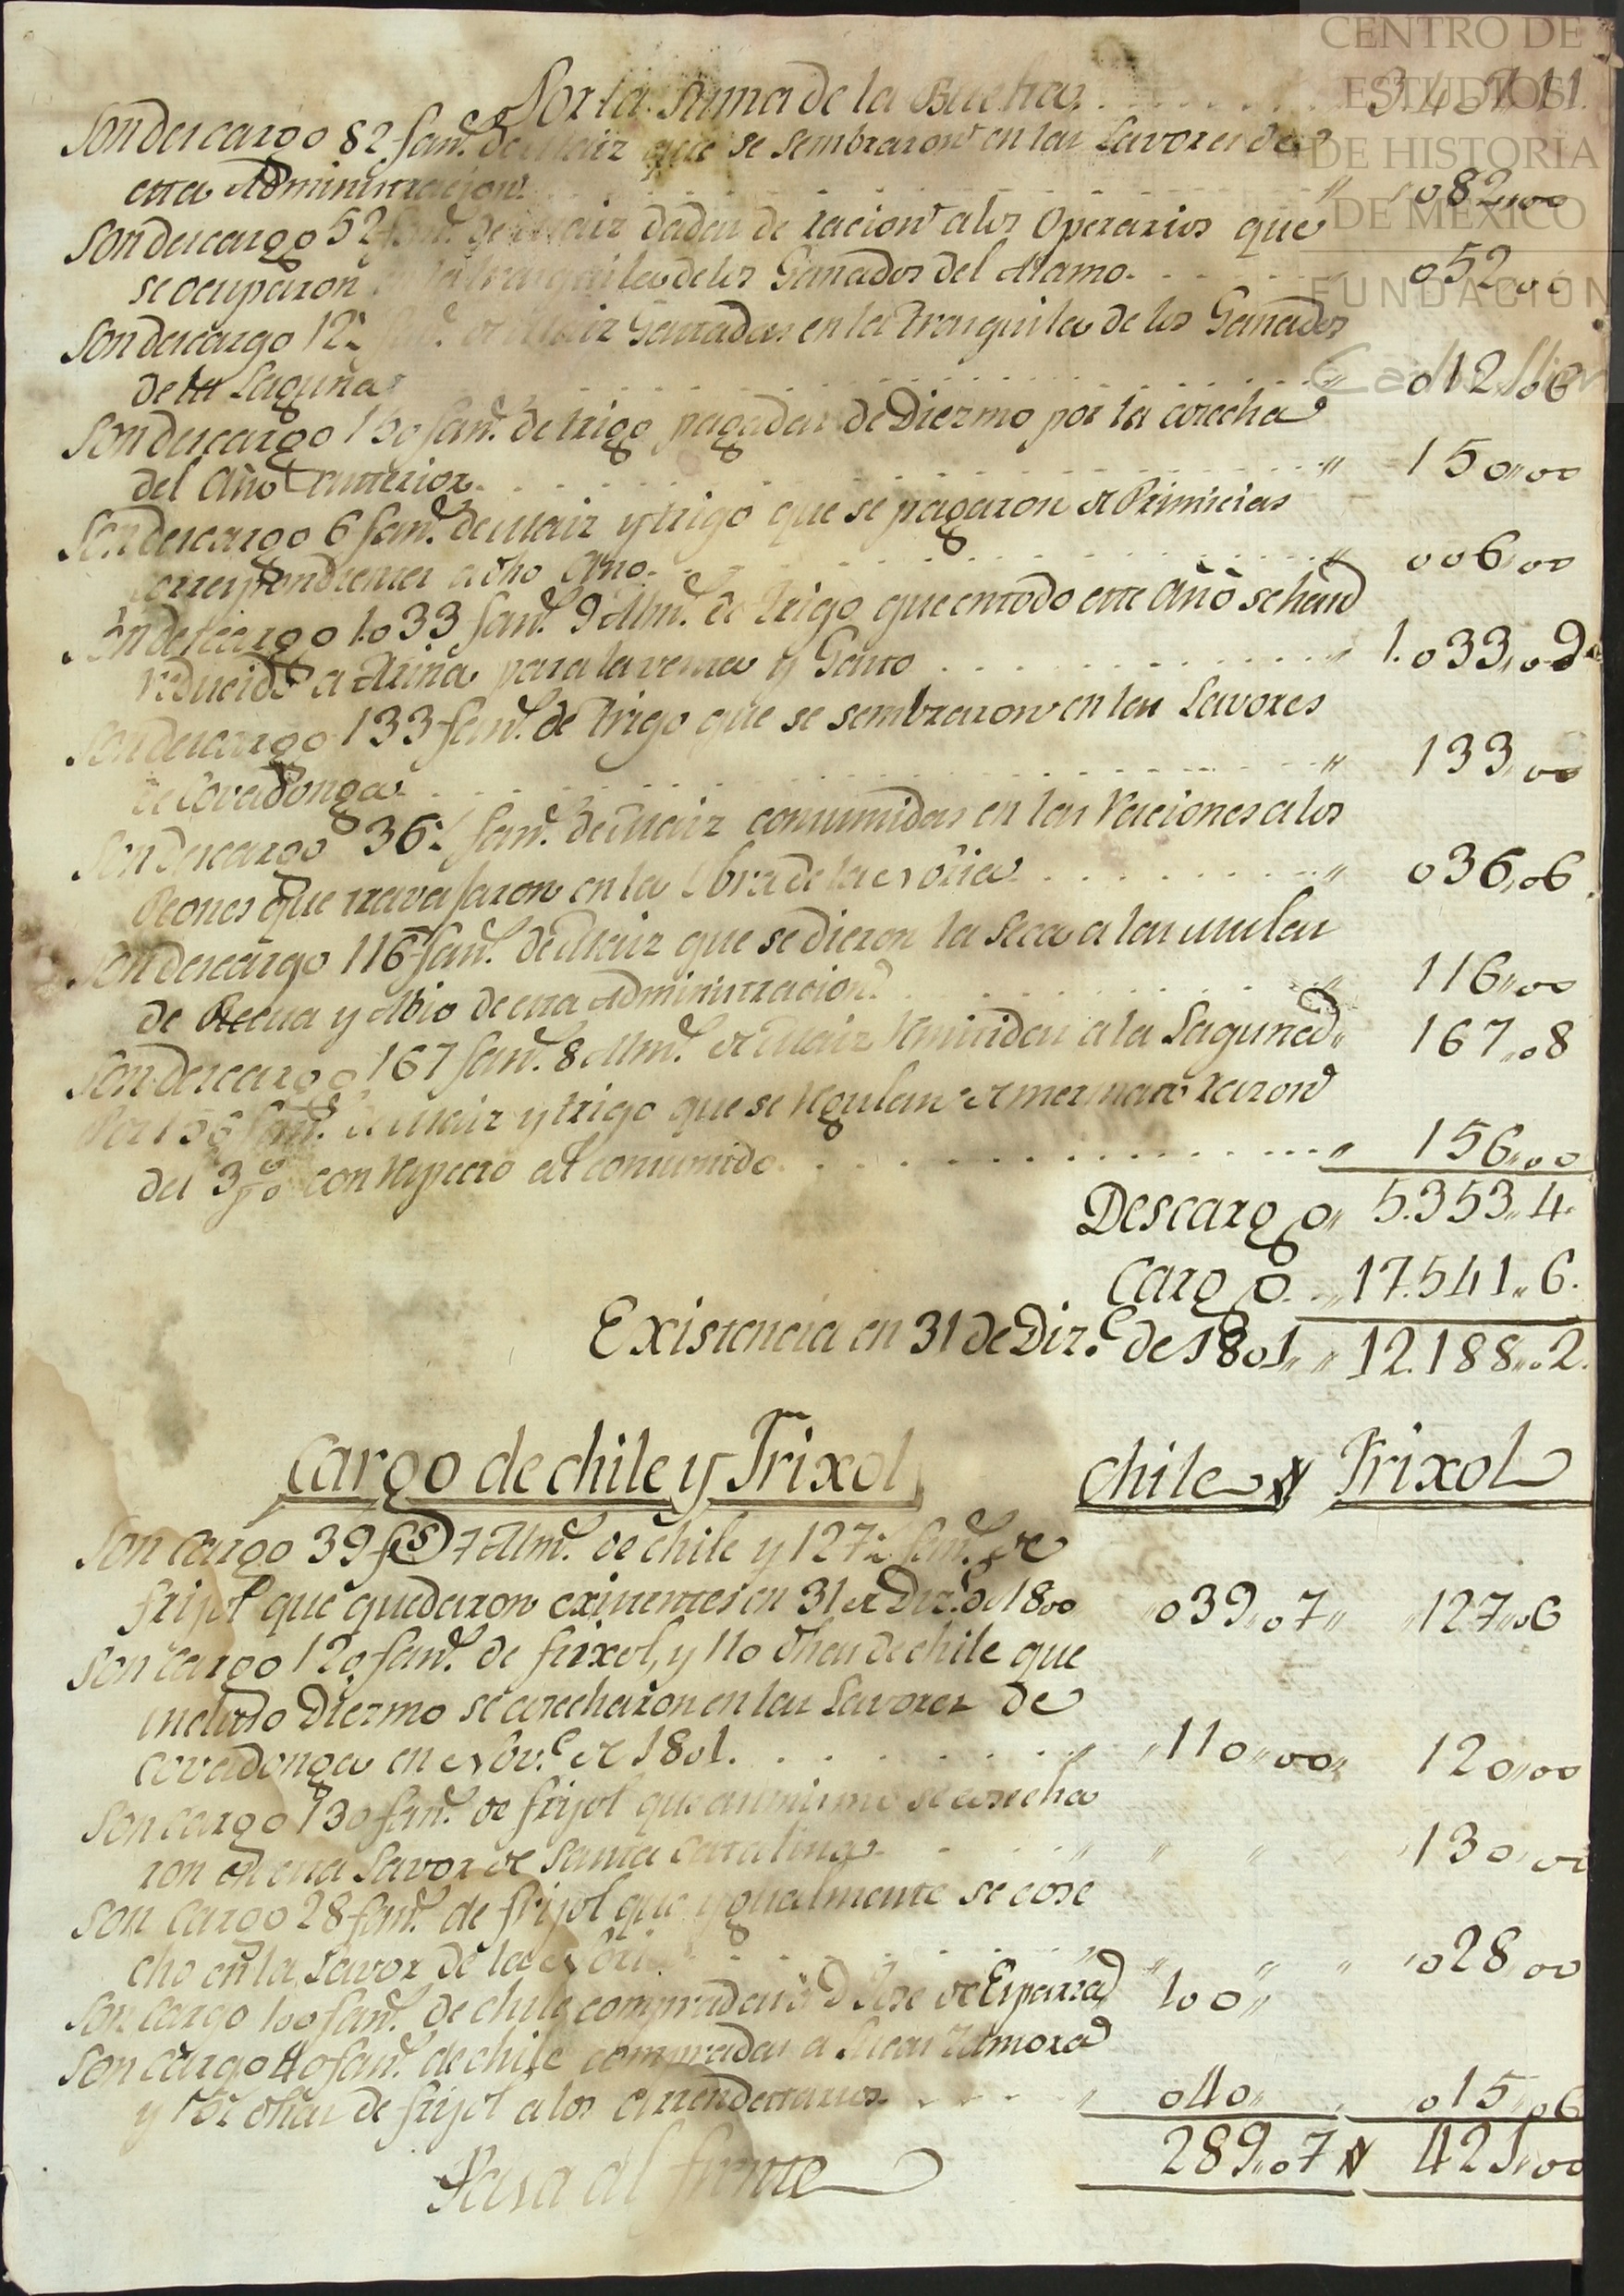 CENTRO DE
ESTUDIOS
DE HISTORIA
DE MÉXICO
FUNDACIÓN
Carlos Slim
Por la Suma de la Buelta . . . . . 3.40 11.
Son descargo 82 fan.s de Maiz que se sembraron en las Lavores de
esta Administracion . . . " . 082,,00
Son descargo 52 fan.s de Maiz dadas de racion a los Operarios que
se ocuparon en la tranquila de los Ganados del Alamo . . . 052,,00
Son descargo 12½ fan.s de Maiz Gastadas en la tranquila de los Ganados
de la Laguna . . . " 012,,06
Son descargo 150 fan.s de trigo pagadas de Diezmo por la cosecha
del Año anterior . . . " 150,,00
Son descargo 6 fan.s de Maiz y trigo que se pagaron de Primicias
correspondientes a dho Año . . . " 006,,00
Son descargo 1.033 fan.s 9 Alm.s de trigo que en todo este Año se han
reducido a Arina para la venta y Gasto . . . " 1.033,,09
Son descargo 133 fan.s de trigo que se sembraron en las Lavores
de Covadonga . . . " 133,,00
Son descargo 36½ fan.s de Maiz consumidas en las Raciones a los
Peones que travajaron en la Obra de la Noria . . . " 036,,06
Son descargo 116 fan.s de Maiz que se dieron la seca a las mulas
de Recua y Abio de esta Administracion . . . " 116,,00
Son descargo 167 fan.s 8 Alm.s de Maiz Remitidas a la Laguna " 167,,08
Por 156 fan.s de Maiz y trigo que se Regulan de mermas a razon
del 3 p%o con Respecto al consumido . . . " 156,,00
Descargo " 5.353,,4.
Cargo . . " 17.541,,6.
Existencia en 31 de Diz.e de 1801 " " 12.188,,02.
Cargo de chile y Frixol chile " Frixol
Son cargo 39 fs 7 Alm.s de chile y 127½ fan.s de
frijol que quedaron existentes en 31 de Diz.e de 1800 " 039,,07 " " 127,,06
Son cargo 120 fan.s de frixol, y 110 dhas de chile que
incluso Diezmo se cosecharon en las Lavores de
Covadonga en Nov.e de 1801 . . . " " 110,,00 " 120,,00
Son cargo 130 fan.s de frijol que asimismo se cosecha
ron en esta Lavor de Santa Catalina . . . " " " 130,,00
Son cargo 28 fan.s de frijol que ygualmente se cose
cho en la Lavor de la Noria . . . " " " " 028,,00
Son cargo 100 fan.s de chile compradas a D Jose de Esparza 100 "
Son cargo 40 fan.s de chile compradas a Lucas Zamora
y 15½ dhas de frijol a los Arrendatarios . . . " 040 " . 015,,06
289,,07 " 421,,00
Pasa al frente